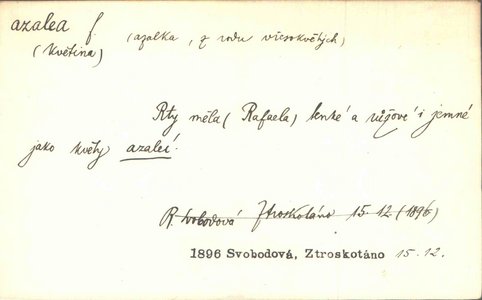 azalea f.
(květina) (azalka, z rodu vřesokvětých)
Rty měla (Rafaela) tenké a růžové i jemné
jako květy azaleí.
R. Svobodová Ztroskotáno 15.12. (1896)
1896 Svobodová, Ztroskotáno 15.12.